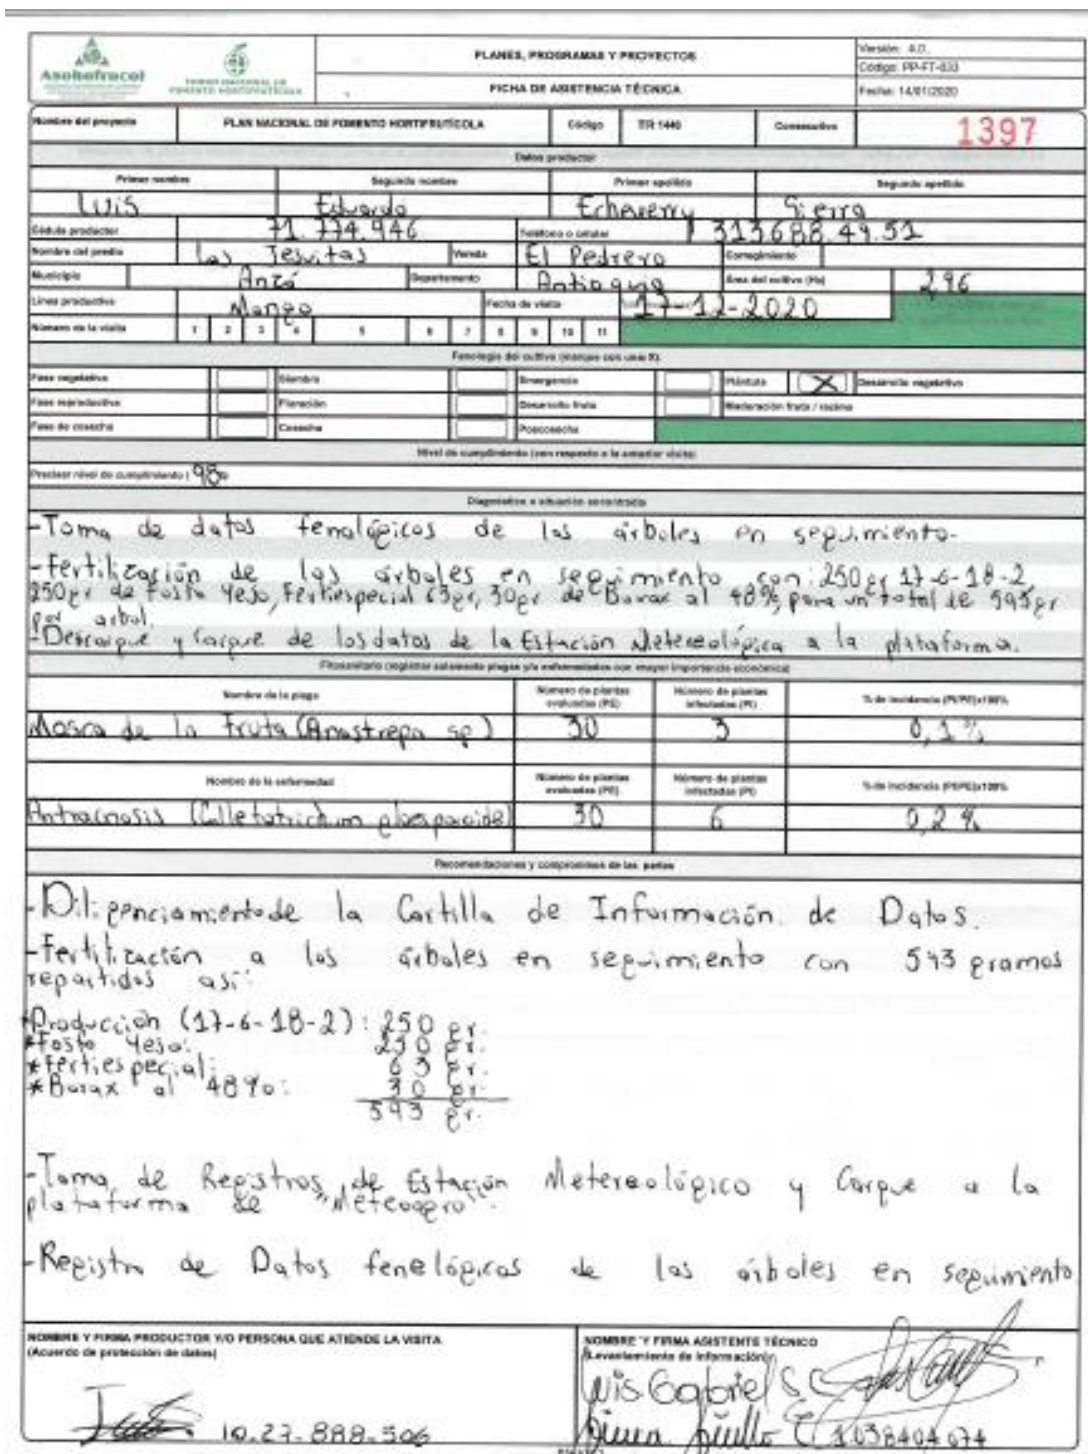 Asohofrucol
FONDO NACIONAL DE
FOMENTO HORTIFRUTÍCOLA
PLANES, PROGRAMAS Y PROYECTOS
FICHA DE ASISTENCIA TÉCNICA
Versión: 4.0.
Código: PP-FT-033
Fecha: 14/01/2020
Nombre del proyecto PLAN NACIONAL DE FOMENTO HORTIFRUTÍCOLA Código TIR 1440 Consecutivo 1397
Datos productor
Primer nombre Segundo nombre Primer apellido Segundo apellido
Luis Eduardo Echeverry Sierra
Cédula productor 71.774.946 Teléfono o celular 313688.49.51
Nombre del predio Las Jesuitas Vereda El Pedrero Corregimiento
Municipio Anzá Departamento Antioquia Área del cultivo (Ha) 296
Línea productiva Mango Fecha de visita 17-12-2020
Número de la visita 1 2 3 4 5 6 7 8 9 10 11
Fenología del cultivo (marque con una X)
Fase vegetativa Siembra Emergencia Plántula X Desarrollo vegetativo
Fase reproductiva Floración Desarrollo fruto Maduración fruta / racimo
Fase de cosecha Cosecha Poscosecha
Nivel de cumplimiento (con respecto a la anterior visita)
Precisar nivel de cumplimiento ( 98%
Diagnóstico o situación encontrada
-Toma de datos fenológicos de los árboles en seguimiento-
-Fertilización de los árboles en seguimiento con: 250 gr 17-6-18-2,
250gr de Fosfo Yeso, Fertiespecial 63gr, 30gr de Borax al 48%, para un total de 593gr
por arbol.
-Descargue y Cargue de los datos de la Estación Metereológica a la plataforma.
Fitosanitario (registrar solamente plagas y/o enfermedades con mayor importancia económica)
Nombre de la plaga Número de plantas evaluadas (PE) Número de plantas infectadas (PI) % de incidencia (PI/PE)x100%
Mosca de la fruta (Anastrepa sp) 30 3 0,1%
Nombre de la enfermedad Número de plantas evaluadas (PE) Número de plantas infectadas (PI) % de incidencia (PI/PE)x100%
Antracnosis (Colletotrichum gloesporoide) 30 6 0,2%
Recomendaciones y compromisos de las partes
-Diligenciamiento de la Cartilla de Información de Datos.
-Fertilización a los árboles en seguimiento con 593 gramos
repartidos así:
*Producción (17-6-18-2): 250 gr.
*Fosfo Yeso: 250 gr.
*Fertiespecial: 63 gr.
*Borax al 48%: 30 gr.
593 gr.
-Toma de Registros de Estación Metereológico y Cargue a la
plataforma de "Meteoagro".
-Registro de Datos fenelógicos de los árboles en seguimiento
NOMBRE Y FIRMA PRODUCTOR Y/O PERSONA QUE ATIENDE LA VISITA
(Acuerdo de protección de datos)
10.27.888.506
NOMBRE Y FIRMA ASISTENTE TÉCNICO
(Levantamiento de información)
Luis Gabriel S C
1038404074